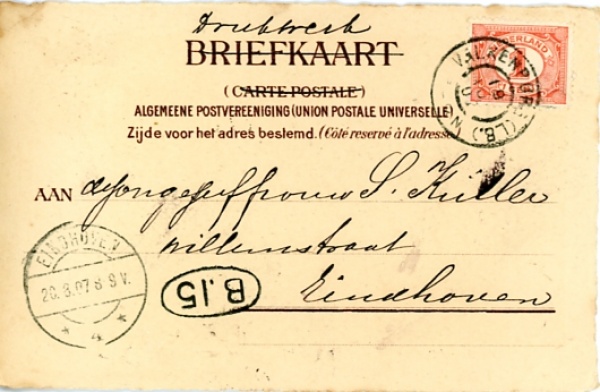 Drukwerk
BRIEFKAART
(CARTE POSTALE)
ALGEMEENE POSTVEREENIGING (UNION POSTALE UNIVERSELLE)
Zijde voor het adres bestemd. (Côté reservé à l'adresse
NEDERLAND
1
VALKENBURG (LB.)
AAN de Jongejuffrouw S. Küller
Willemstraat
Eindhoven
EINDHOVEN
20.8.07 8-9V.
4
B.15